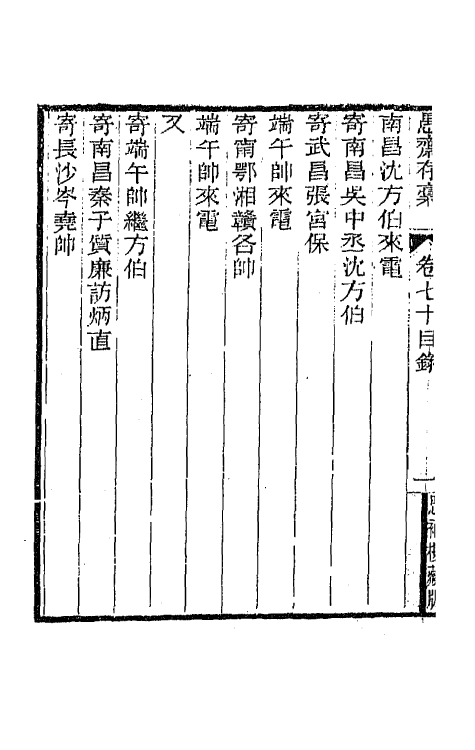 愚齋存藁
卷七十目錄
一
思補樓藏版
南昌沈方伯來電
寄南昌吳中丞沈方伯
寄武昌張宮保
端午帥來電
寄甯鄂湘贛各帥
端午帥來電
又
寄端午帥繼方伯
寄南昌秦子質廉訪炳直
寄長沙岑堯帥